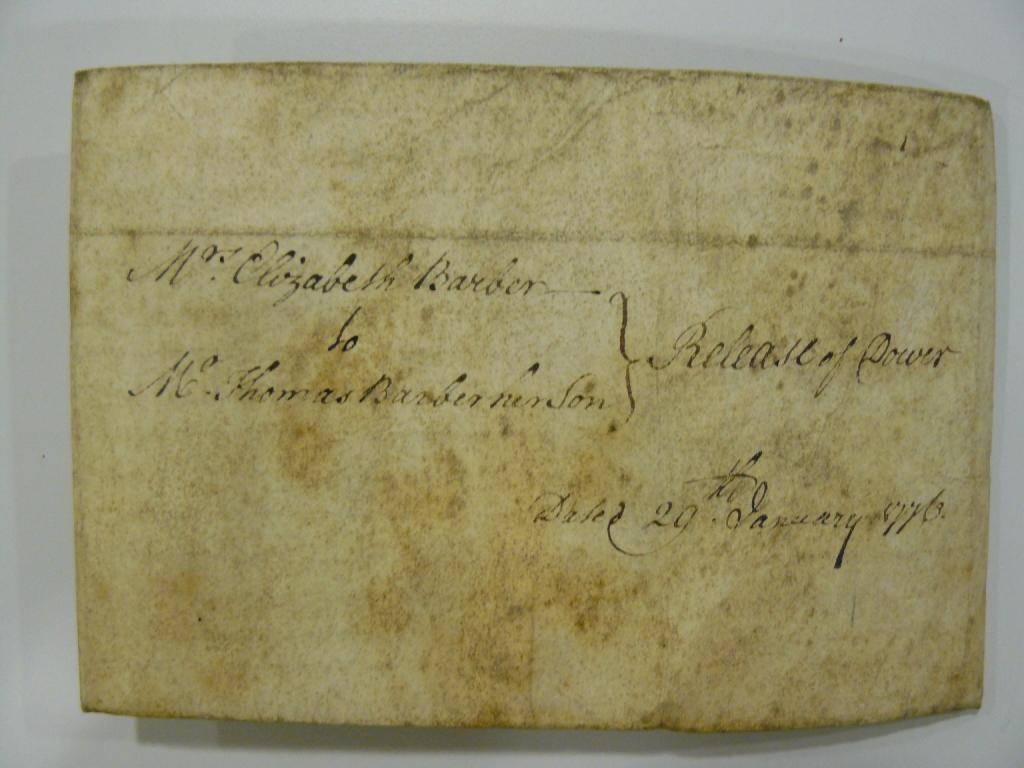 Mrs. Elizabeth Barber
to
Mr. Thomas Barber her Son
Release of Dower
Dated 29th. January 1776.